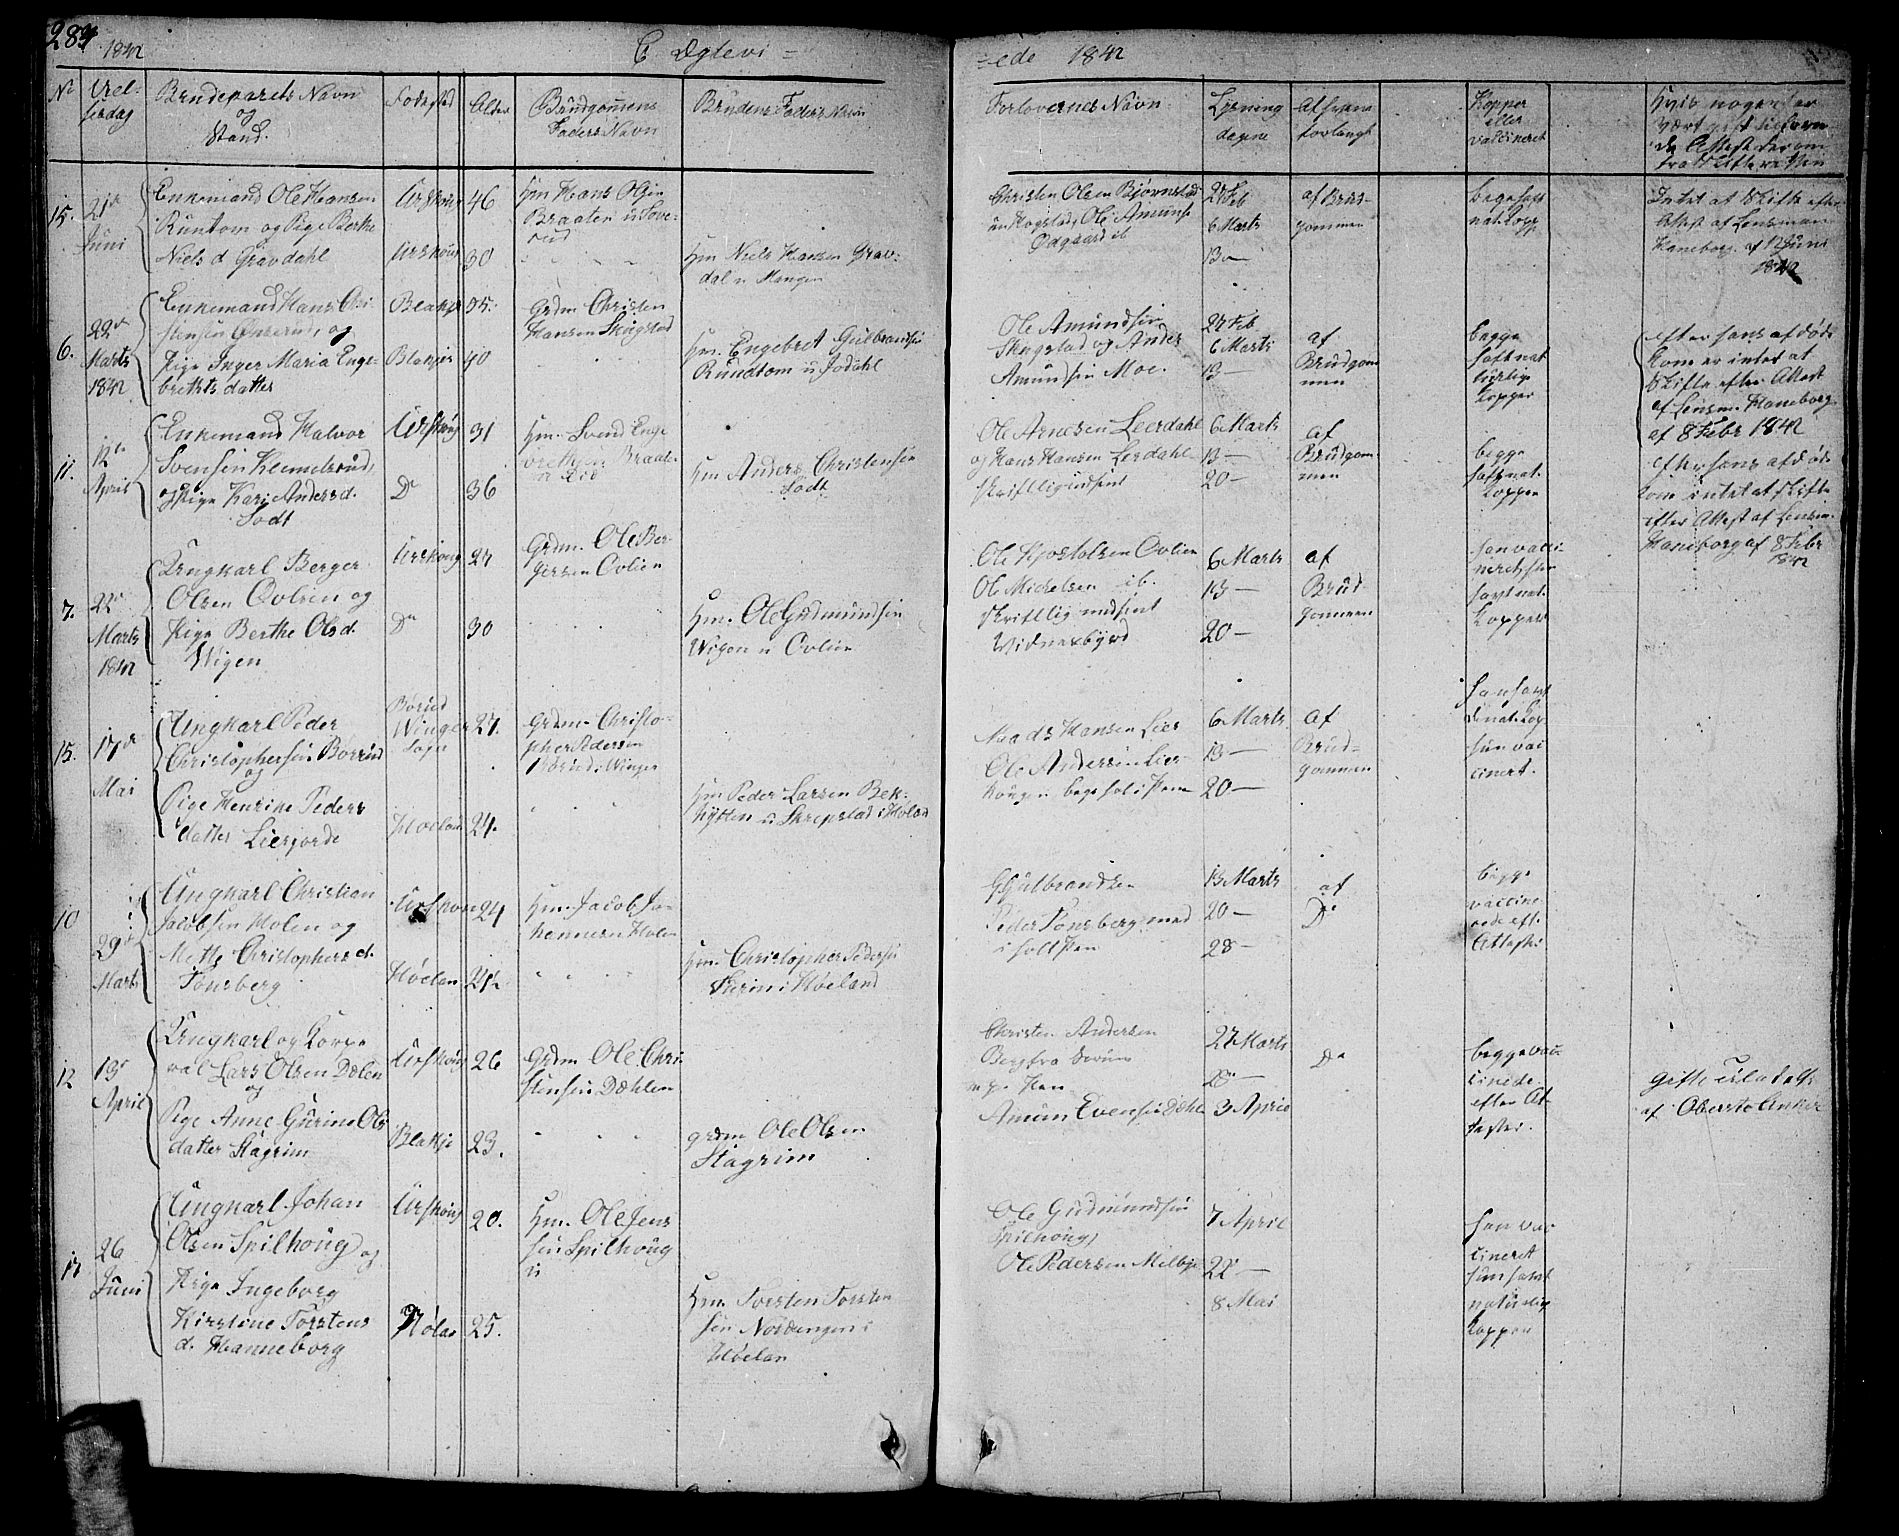 284
1842
C Ægtevi=
=ede 1842
No
Viel-
sesdag
Brudeparets Navn
og
Stand.
Fødested
Alder
Brudgommens
Faders Navn
Brudens Faders Navn
Forlovernes Navn
Lysning
dagene
Af hvem
forlangt
Kopper
eller
vaccineret
Hvis nogen har
vært gift tilforn
da Attest derom
fra Skifteretten
15.
21de
Juni
Enkemand Ole Hansen
Runtom og Pige Berthe
Niels d Gravdahl
Urskoug 46
Urskoug 30
Hm Hans
Braaten
Hm Niels Hansen Grav-
dal u Mangen
Christen Olsen Bjørnstad
Ole Amunds
Ødgaard ib
27 Feb
6 Marts
13 —
af Brud-
gommen
begge haft
nat. Kopp
Intet at Skifte efter
Attest af Lensman
Haneborg af 12 Juni
1842
6.
22de
Marts
1842
Enkemand Hans Chri-
stensen og
Pige Inger Maria Enge-
brethts datter
Blakjer 35.
Blakjer 40
Grdm Christen
Hansen Skugstad
Hm. Engebret Gulbrandsen
Rundtom u Fodahl
Ole Amundsen
Skugstad og Anders
Amundsen Moe.
27 Feb
6 Marts
13 —
af
Brudgom
men
begge
haft nat
turlige
Kopper
efter hans afdøde
Kone er intet at
Skifte efter Attest
af Lensm. Haneborg
af 8 Febr 1842
11.
12te
April
Enkemand Halvor
Svensen Kemmelsrud,
og Pige Kari Andersd.
Lodt
Urskoug 31
Do 36
Hm. Svend Enge
brethsen Braate
Hm Anders Christensen
Lodt
Ole Arnesen Leerdahl
og Hans Hansen Lerdahl
skriftlig indsent
6 Marts
13 —
20 —
af
Brudgom-
men
begge
haft nat.
Kopper
efter hans afdøde
Kone intet at skifte
efter Attest af Lensm.
Haneborg af 8 Febr
1842
7.
22de
Marts
1842
Ungkarl Berger
Olsen Ovlien og
Pige Berthe Olsd.
Wigen
Urskoug 27
Do 30
Grdm. Ole Ber-
gersen Ovlien
Hm. Ole Gudmundsen
Wigen u Ovlien
Ole Kjostolsen Ovlien
Ole Michelsen ib.
skriftlig indsent
Vidnesbyrd
6 Marts
13 —
20 —
af
Brud
gommen
han vacci
neret hun
havt nat.
Kopper
15.
17de
Mai
Ungkarl Peder
Christophersen Børrud
og
Pige Henrike Peders
datter Lierfjorde
Børud
Winger 27.
Sogn
Høland 24.
Grdm. Christo-
pher Pedersen
Børud i Winger
Hm Peder Larsen Bek-
hytten u Skrepstad i Høland
Mads Hansen Lier
Ole Andersen Lier
6 Marts
13 —
20 —
af
Brud-
gommen
han havt
de nat. Kop
hun vac
cinert.
10
29de
Marts
Ungkarl Christian
Jacobsen Holen og
Mette Christophersd.
Tonsberg
Urskoug 24
Høelan 24
Hm. Jacob Jo-
hannesen Holen
Hm. Christopher Pedersen
i Høeland
G Gulbrandsen
Peder Tonsberg med
13 Marts
20 —
28 —
af
Do
begge
vaccine
rede eft.
Attester
12
13de
April
Ungkarl og
Lars Olsen Dælen
og
Pige Anne Gurine Ols
datter Stagrim
Urskoug 26
Blakje 23.
Grdm Ole Chri
stensen Dæhlen
grdm Ole Olsen
Stagrim
Christen Andersen
Berg fra Sørum
Amun Evensen Dæhl
27 Marts
28 —
3 April
Do
begge vac
cinede
efter At-
tester.
af Oberst Anker
17
26
Juni
Ungkarl Johan
Olsen Spilhoug og
Pige Ingeborg
Kirstine Torstens
d. Hanneborg
Urskoug 20.
Hølan 25.
Hm. Ole Jens
sen Spilhoug
Hm. Torsten Torsten
sen Nordengen i
Høelan
Ole Gudmundsen
Spilhoug,
Ole Pedersen Melbye
7 April
22 —
8 Mai
han vac
cineret
hun havt
naturlig
Kopper